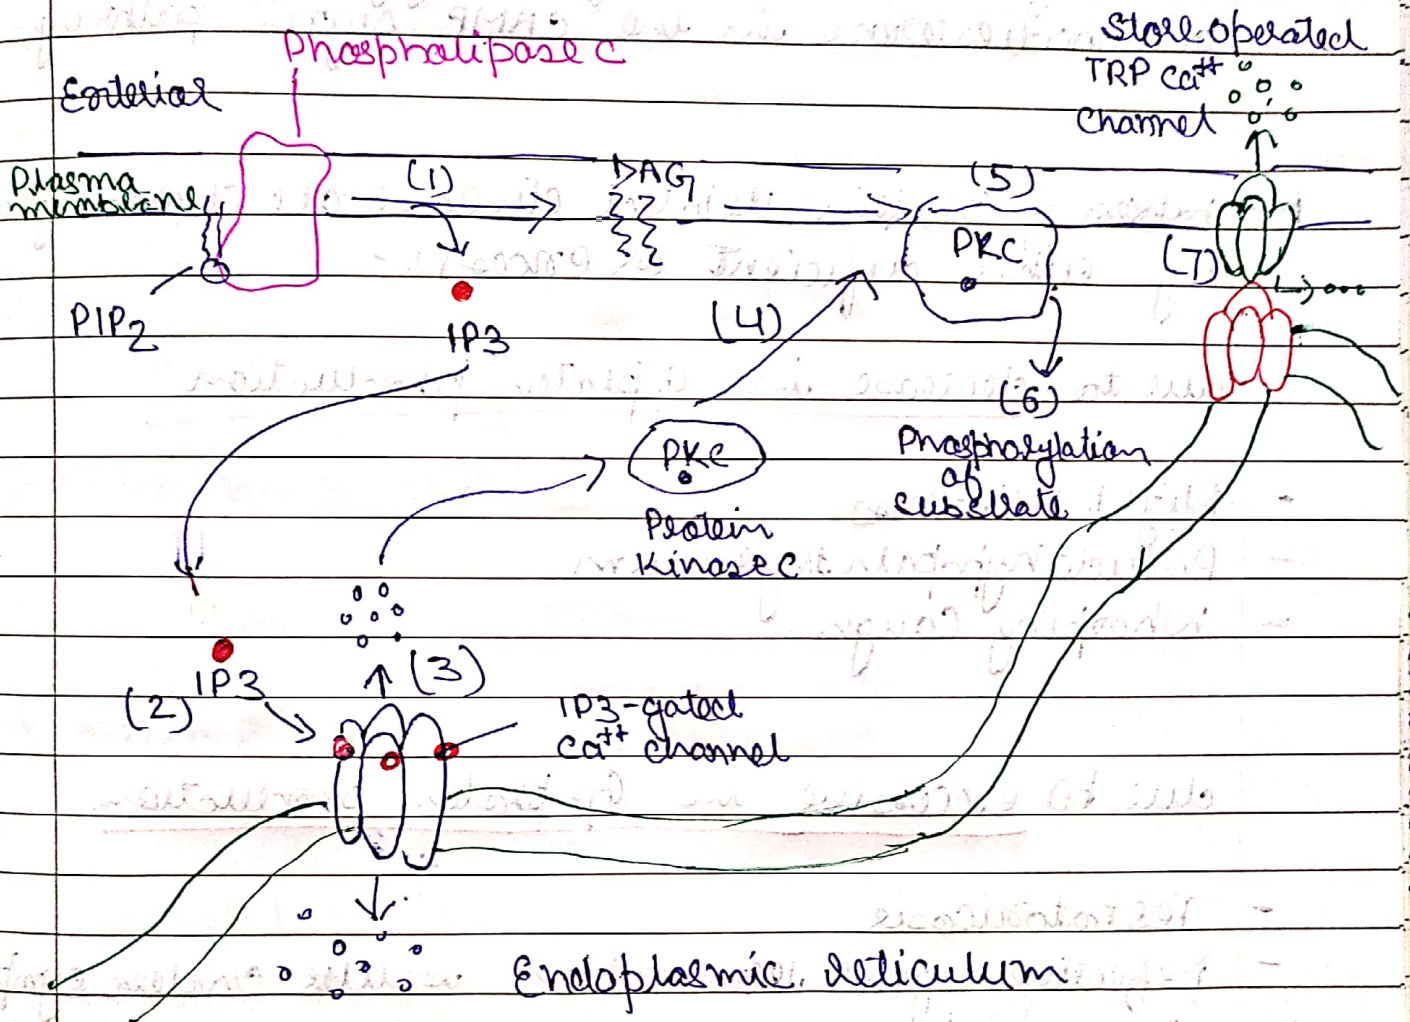 Phosphalipase C
Store operated
TRP Ca++
Channel
Exterial
Plasma
membrane
(1)
DAG
(5)
PKC
(7)
PIP2
IP3
(4)
(6)
Phosphorylation
of
substrate
PKC
Protein
Kinase C
IP3
(2)
(3)
IP3-gated
Ca++ channel
Endoplasmic reticulum